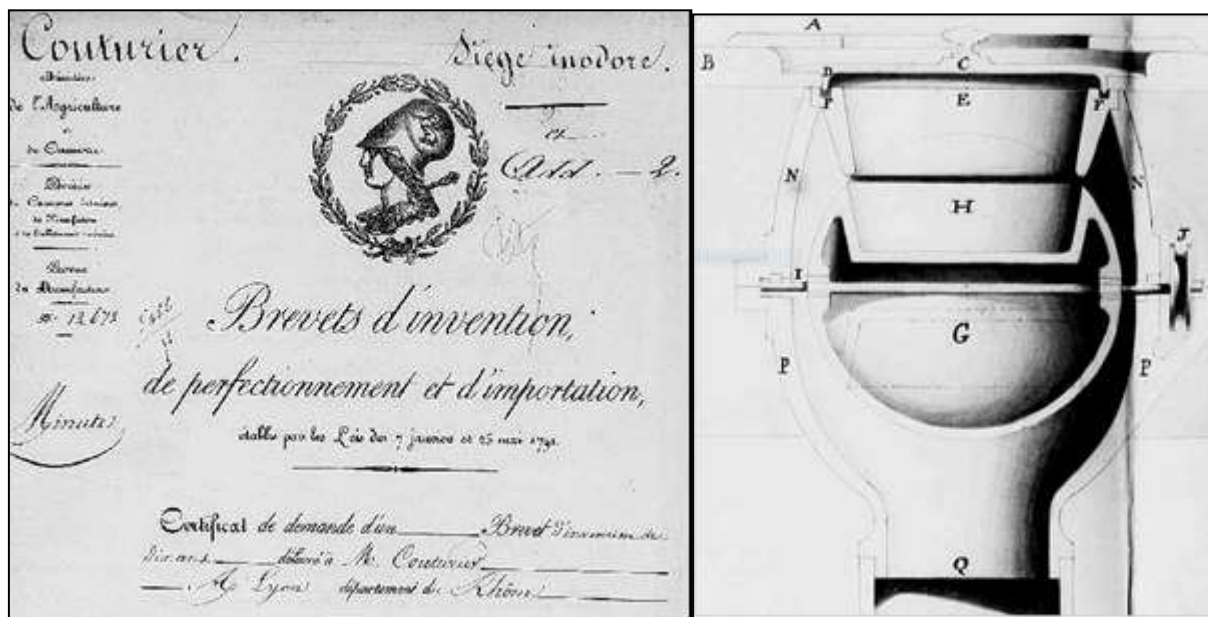 Couturier.
Siège inodore.
Ministère
de l'Agriculture
et
du Commerce
Division
du Commerce intérieur,
des Manufactures
Bureau
des Manufactures
N° 13,673
Minute
Add. — 2.
Brevets d'invention,
de perfectionnement et d'importation,
établis par les Lois des 7 janvier et 25 mai 1791.
Certificat de demande d'un Brevet d'invention de
dix ans délivré à M. Couturier
A Lyon département du Rhône
A
B
C
D
E
F
F
N
H
I
J
G
P
P
Q